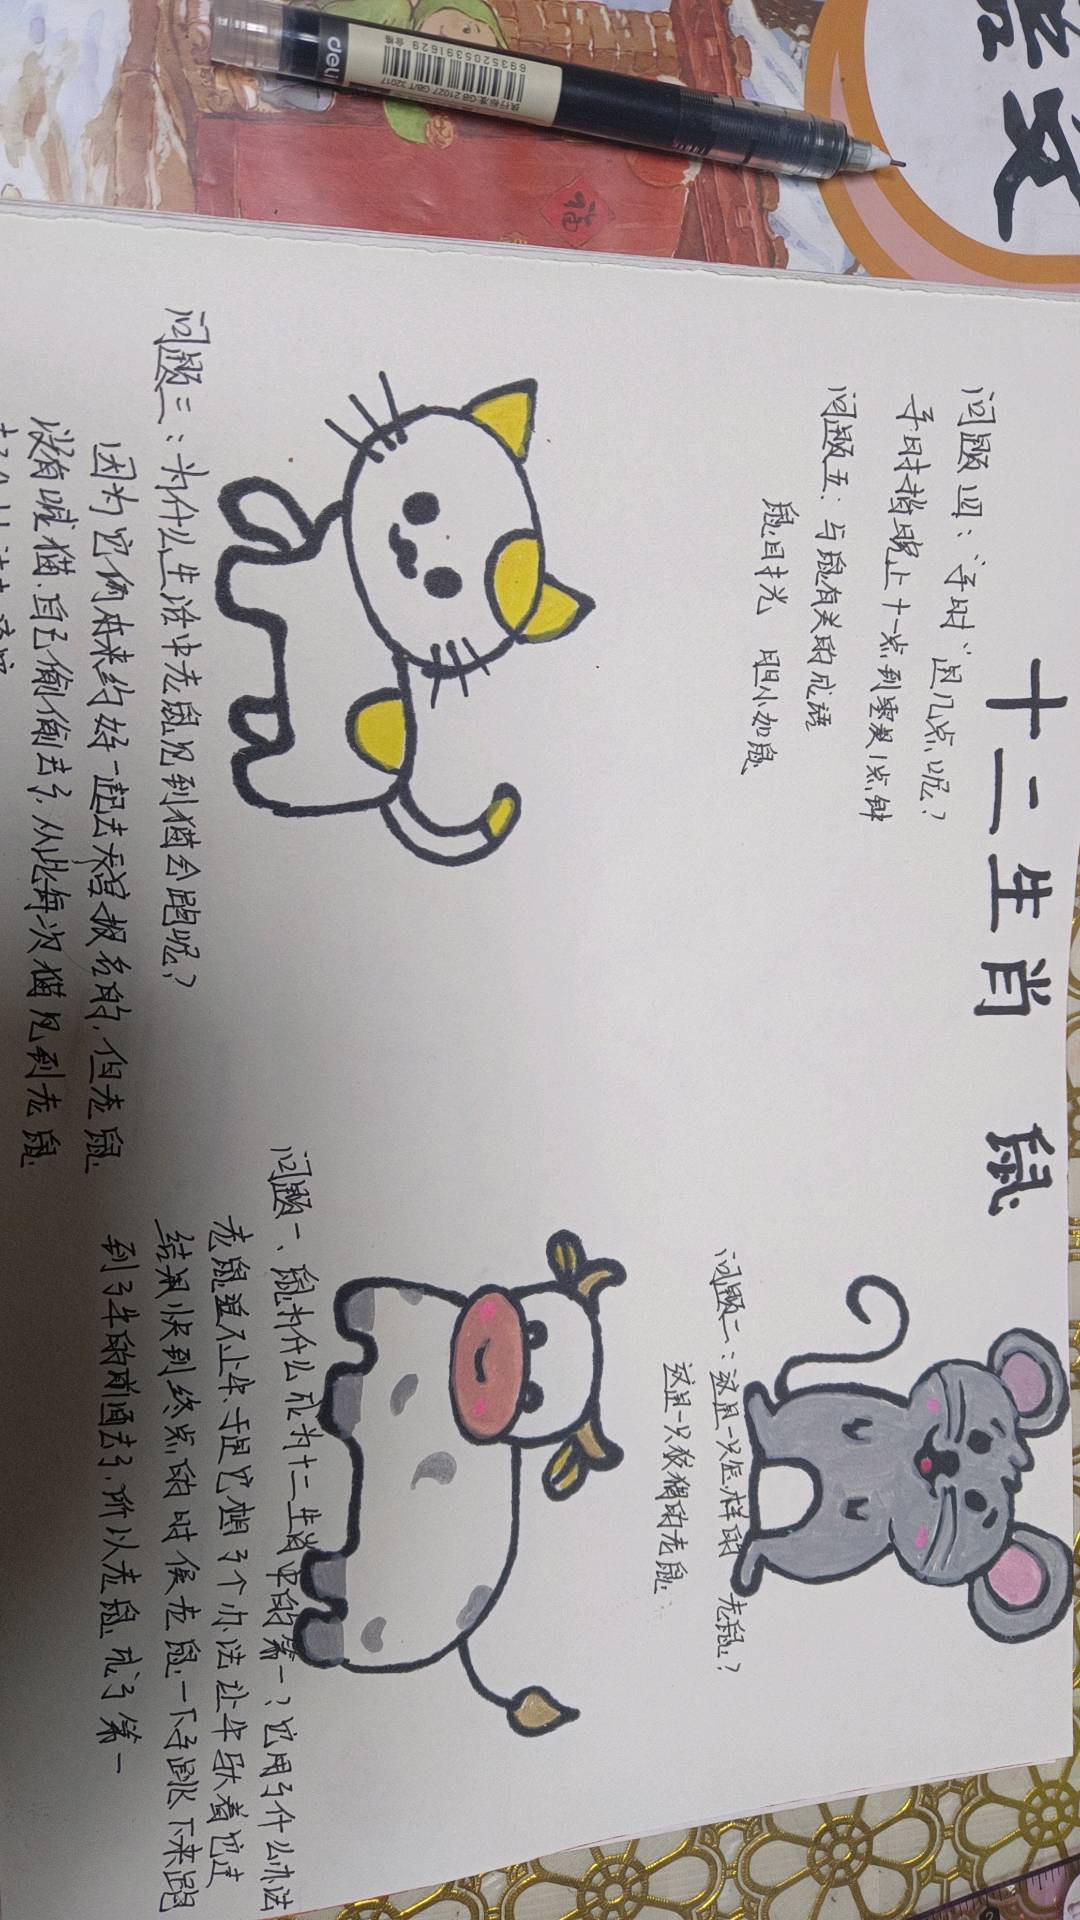 文
deli
合格
6935205391629
执行标准:GB 21027 GB/T 32017
福
十二生肖 鼠
问题四：“子时”是几点呢？
子时指晚上十一点到凌晨1点钟
问题五：与鼠有关的成语
鼠目寸光 胆小如鼠
问题二：这是一只怎样的老鼠？
这是一只狡猾的老鼠
问题三：为什么生活中老鼠见到猫会跑呢？
因为它俩本来约好一起去天宫报名的，但老鼠
没有喊猫，自己偷偷去了，从此每次猫见到老鼠
问题一、鼠为什么成为十二生肖中的第一？它用了什么办法
老鼠追不上牛，于是它想了个办法让牛驮着它过
结果快到终点的时候老鼠一下子跳下来跑
到了牛的前面去了，所以老鼠成了第一